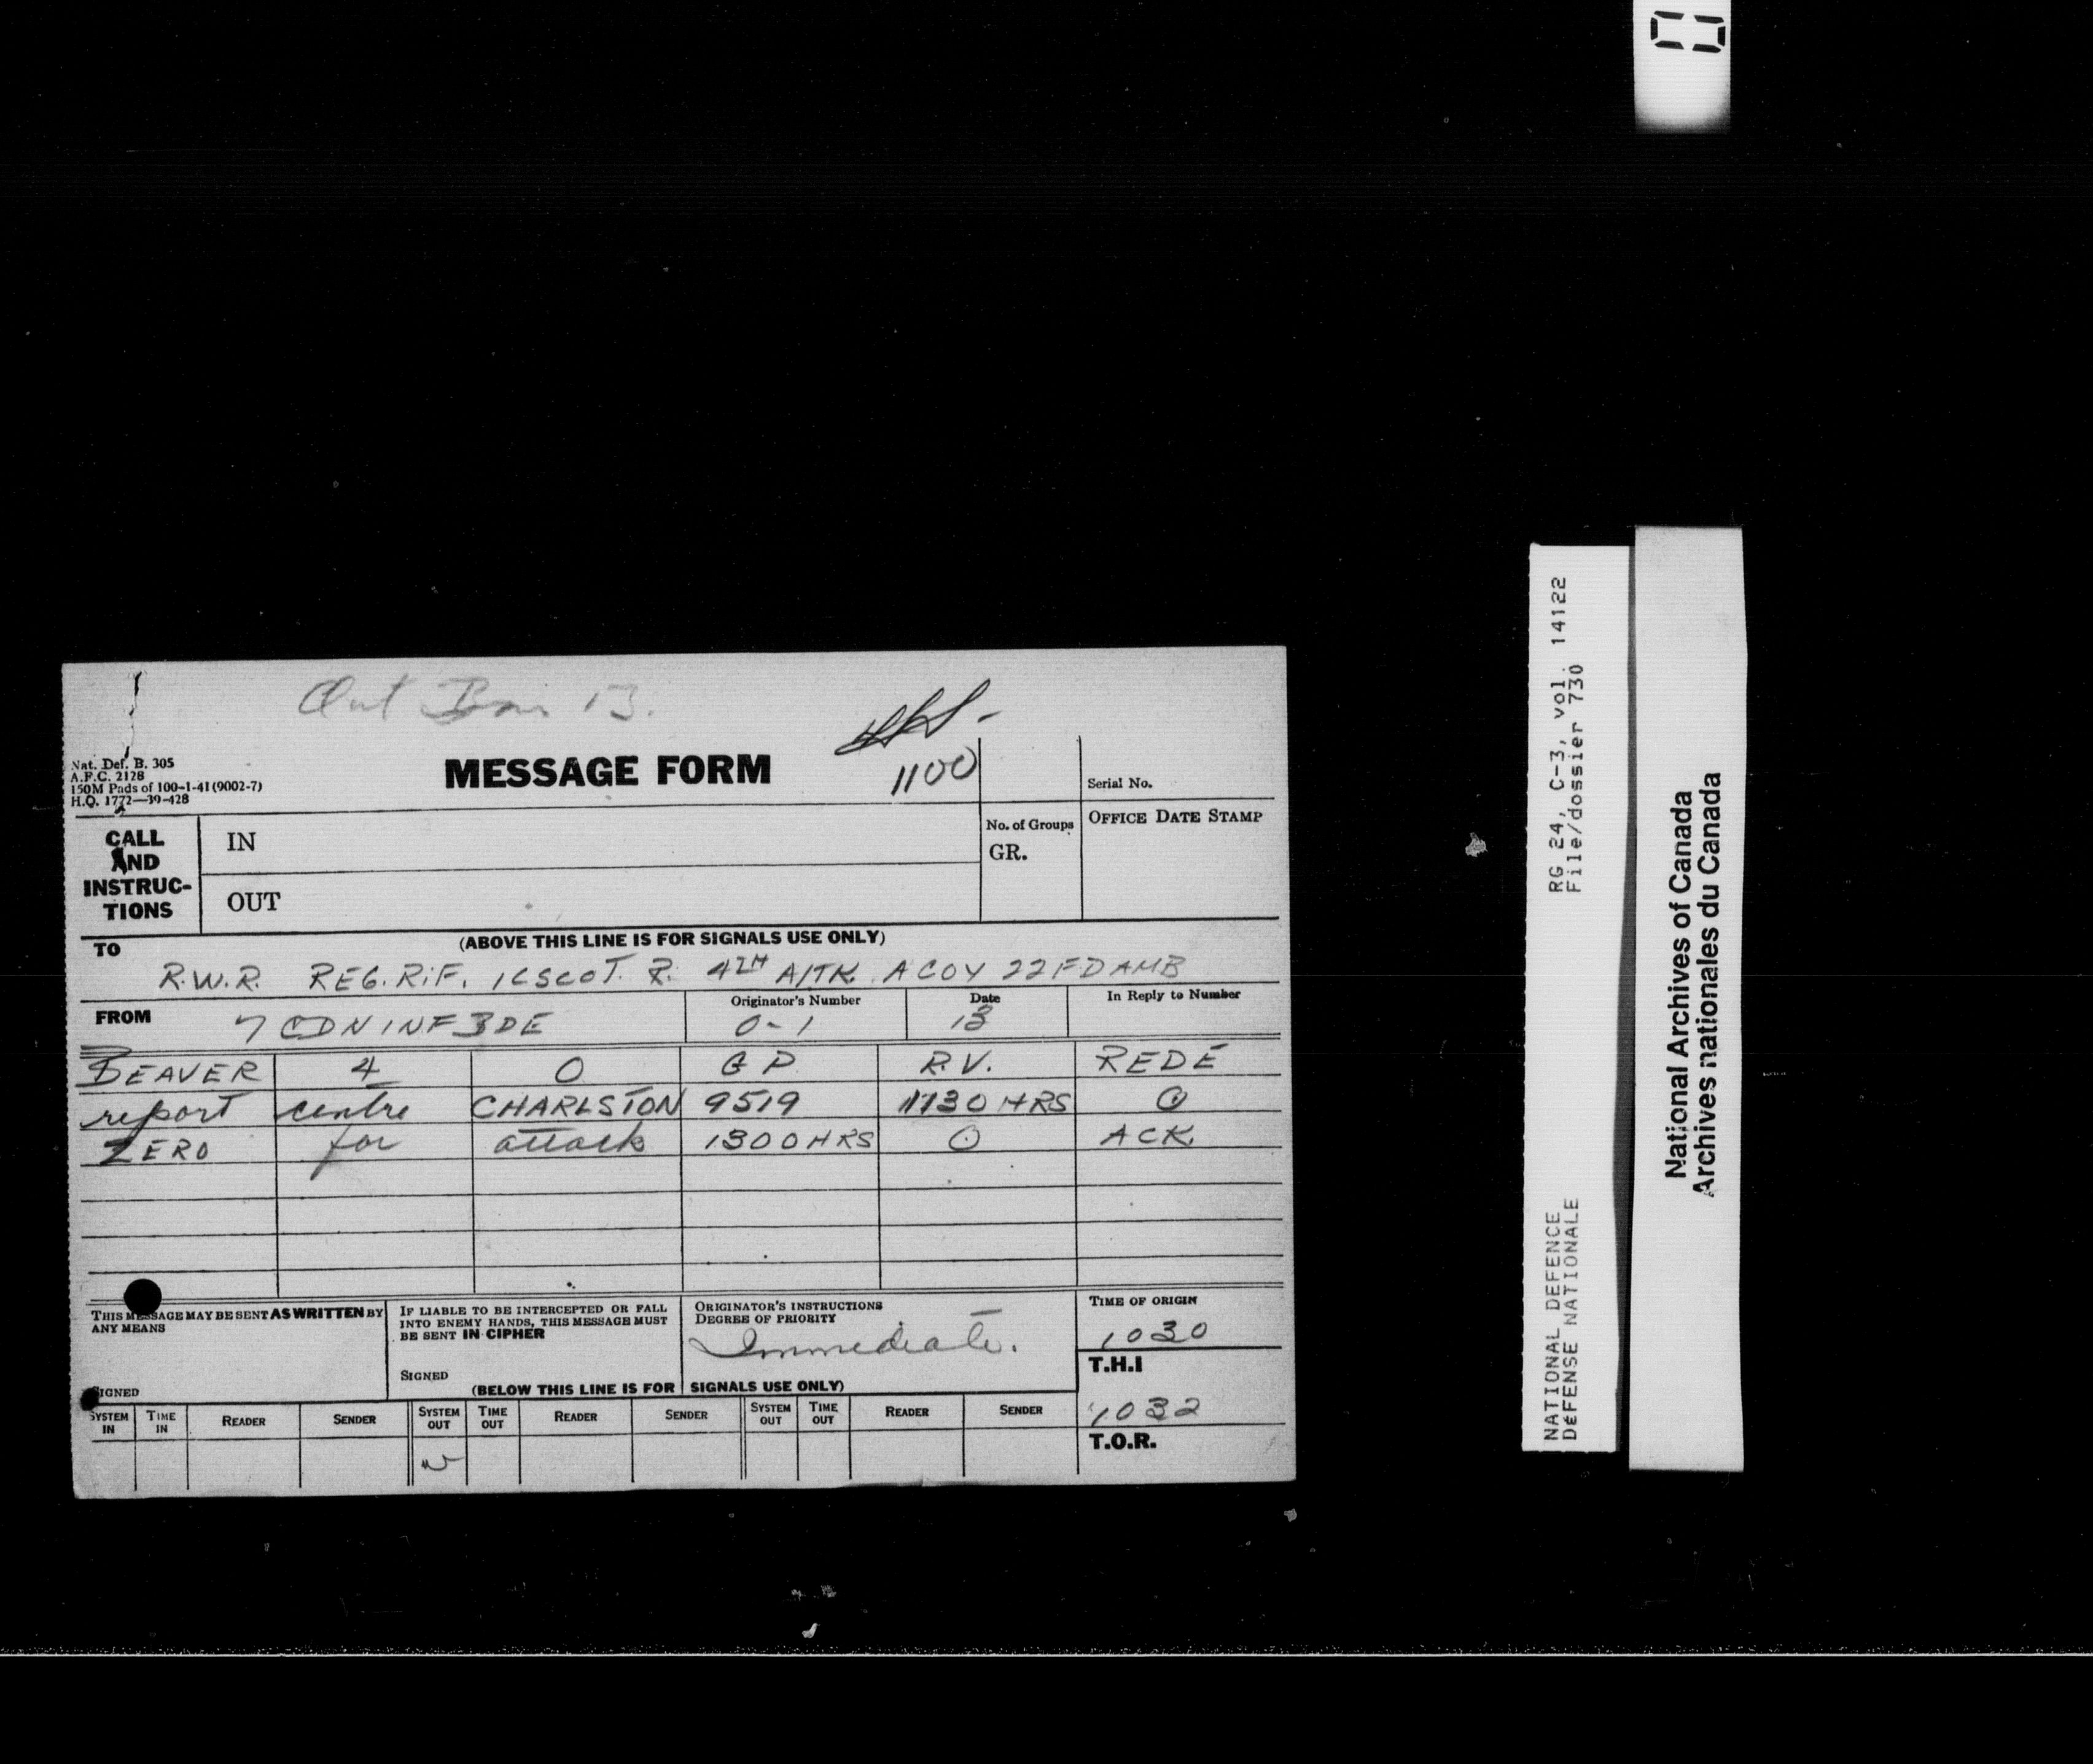 Out 13.
1100
Nat. Def. B. 305
A.F.C. 2128
150M Pads of 100-1-41 (9002-7)
H.Q. 1772—39-428
MESSAGE FORM
Serial No.
CALL AND INSTRUC-TIONS
IN
OUT
No. of Groups
GR.
OFFICE DATE STAMP
TO
(ABOVE THIS LINE IS FOR SIGNALS USE ONLY)
R.W.R. REG. RIF. 1 C SCOT. R. 4TH A/TK. A COY 22 FD AMB
FROM 7 CDN INF BDE
Originator's Number 0-1
Date 13
In Reply to Number
BEAVER 4 O G P R.V. REDE
report centre CHARLSTON 9519 1130 HRS ⊙
ZERO for attack 1300 HRS ⊙ ACK
THIS MESSAGE MAY BE SENT AS WRITTEN BY
ANY MEANS
SIGNED
IF LIABLE TO BE INTERCEPTED OR FALL
INTO ENEMY HANDS, THIS MESSAGE MUST
BE SENT IN CIPHER
SIGNED
ORIGINATOR'S INSTRUCTIONS
DEGREE OF PRIORITY
Immediate.
TIME OF ORIGIN
1030
T.H.I
1032
T.O.R.
(BELOW THIS LINE IS FOR SIGNALS USE ONLY)
SYSTEM IN TIME IN READER SENDER SYSTEM OUT TIME OUT READER SENDER SYSTEM OUT TIME OUT READER SENDER
RG 24, C-3, vol. 14122
File/dossier 730
NATIONAL DEFENCE
DéFENSE NATIONALE
National Archives of Canada
Archives nationales du Canada